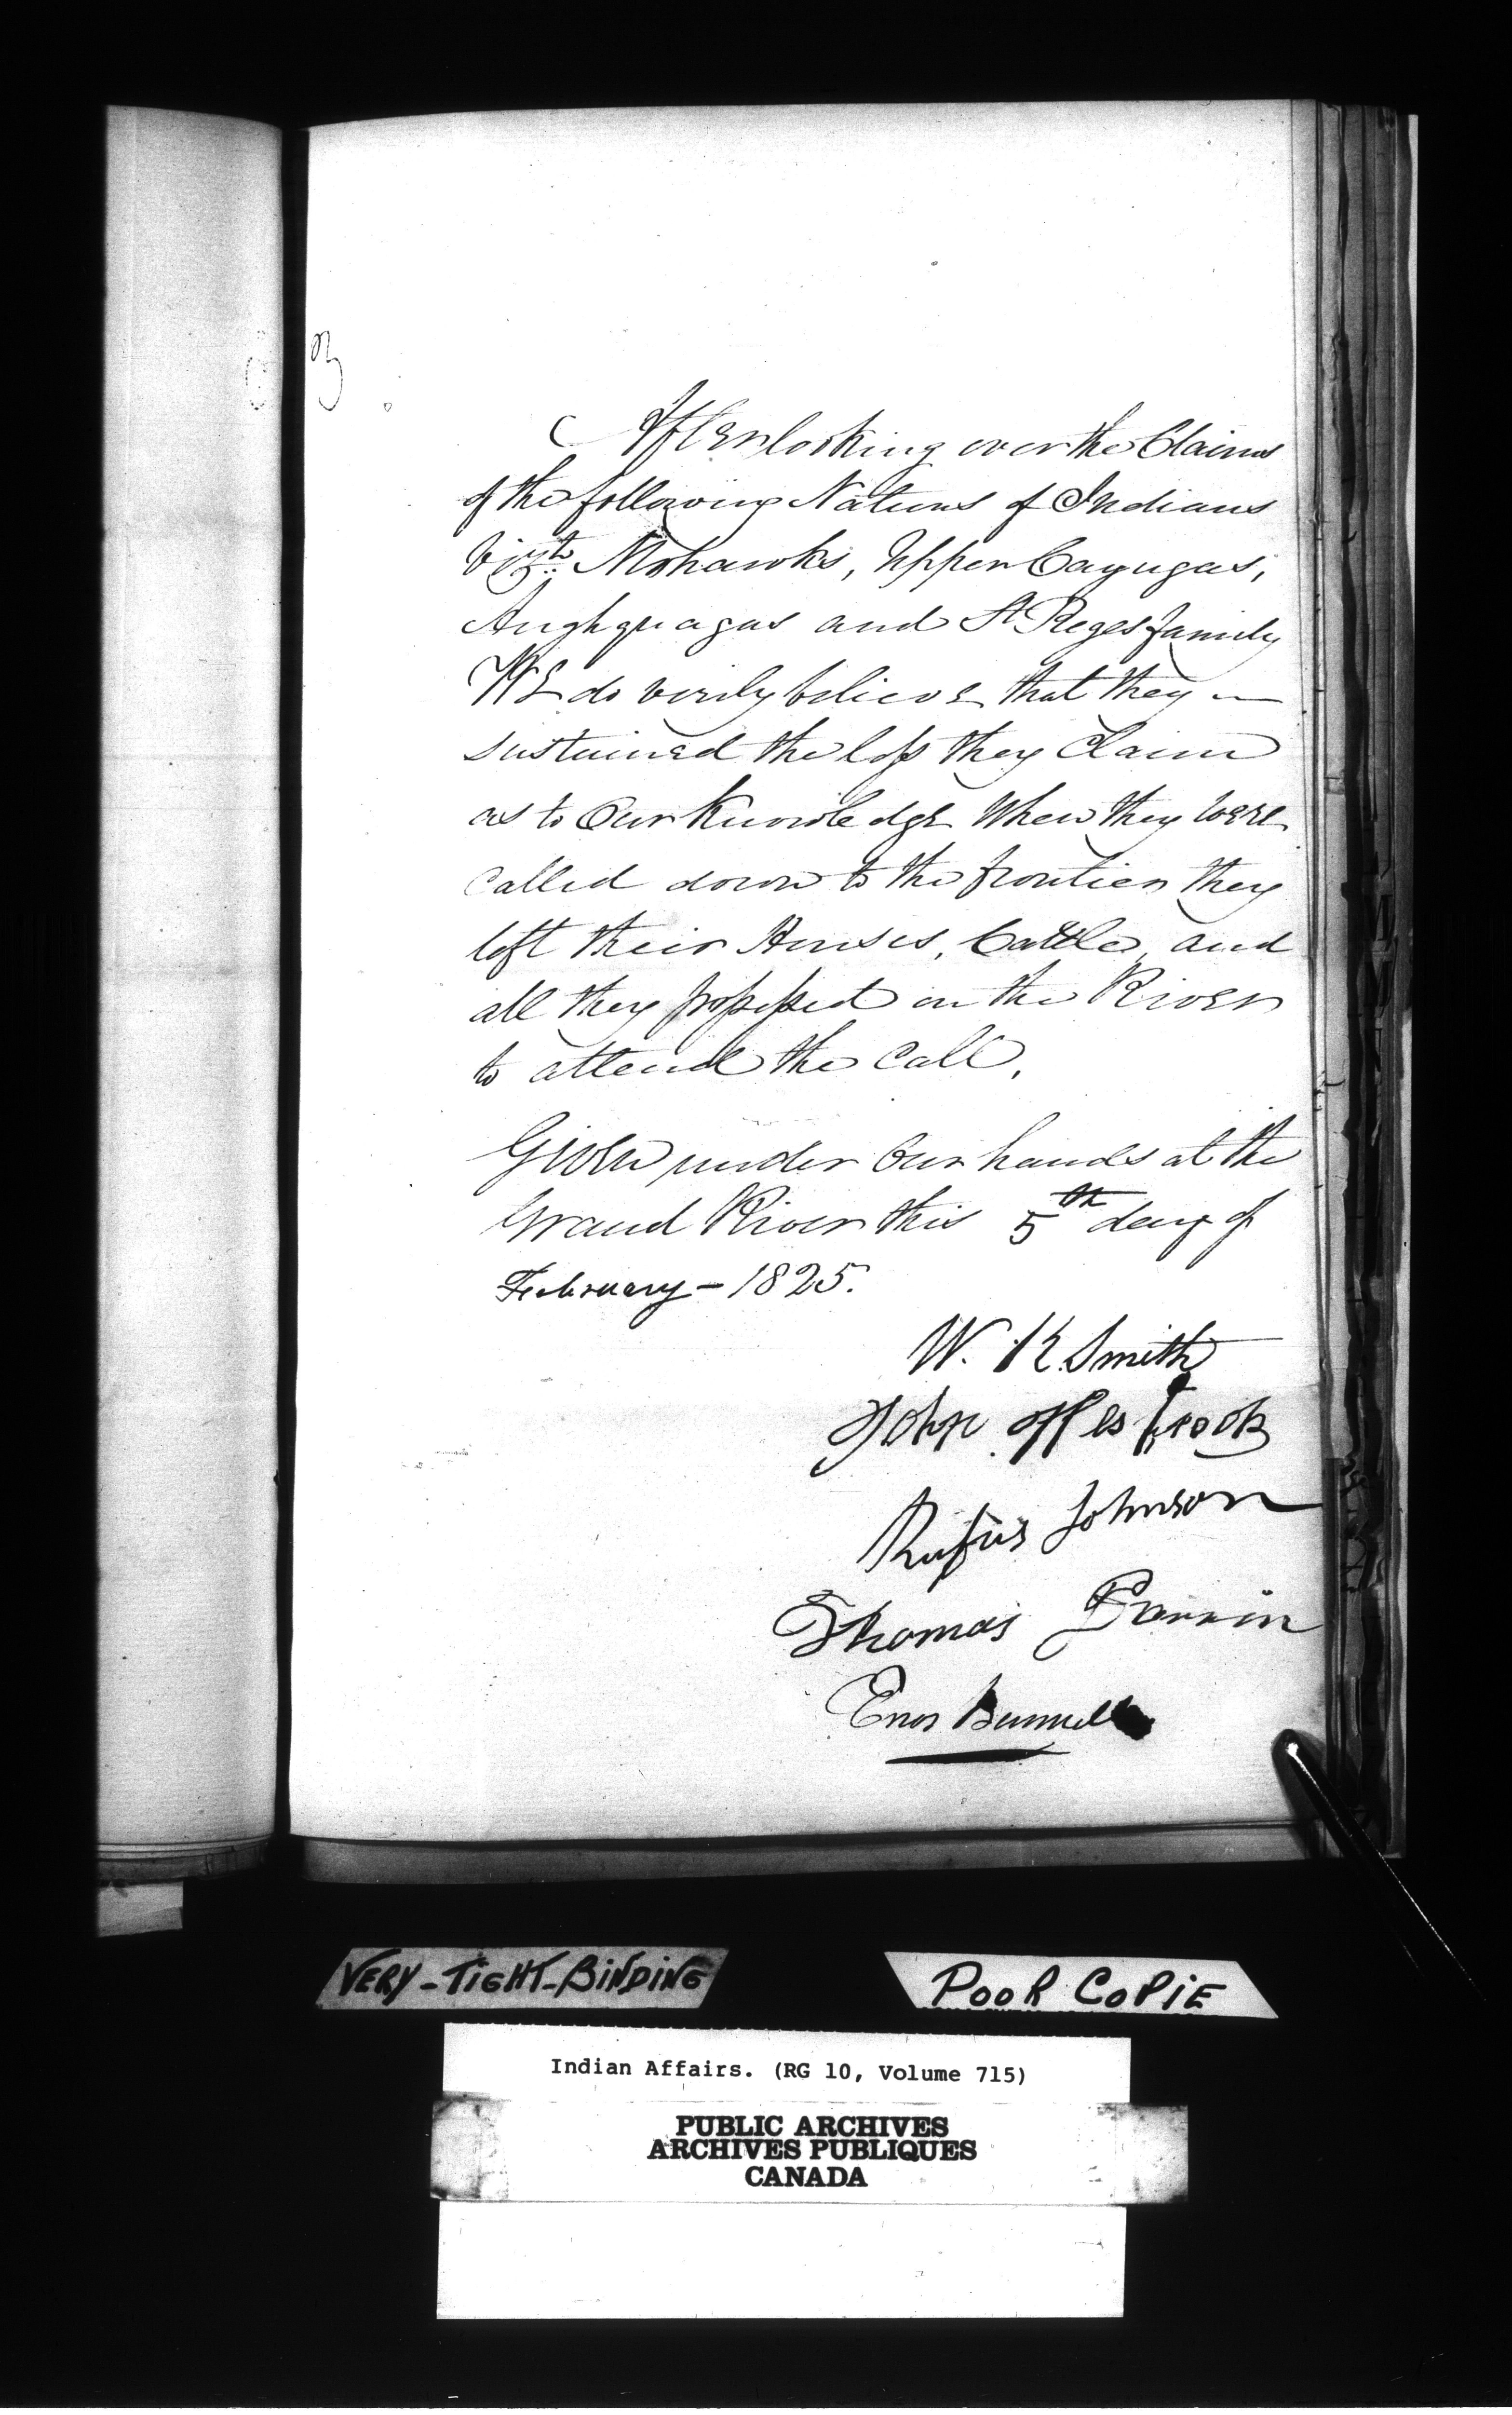 3
After looking over the Claims
of the following Nations of Indians
Vizt. Mohawks, Upper Cayugas,
Aughquagas and St Reges family
WE do verily believe that they —
sustained the loss they Claim
as to Our Knowledge When they were
Called down to the frontier they
left their Houses, Cattle, and
all they possessed on the River
to attend the Call.
Given under Our hands at the
Grand River this 5th day of
February - 1825.
W. K Smith
John Westbrook
Rufus Johnson
Thomas Perrin
Enos Bunnell
VERY-TIGHT-BINDING
POOR COPIE
Indian Affairs. (RG 10, Volume 715)
PUBLIC ARCHIVES
ARCHIVES PUBLIQUES
CANADA